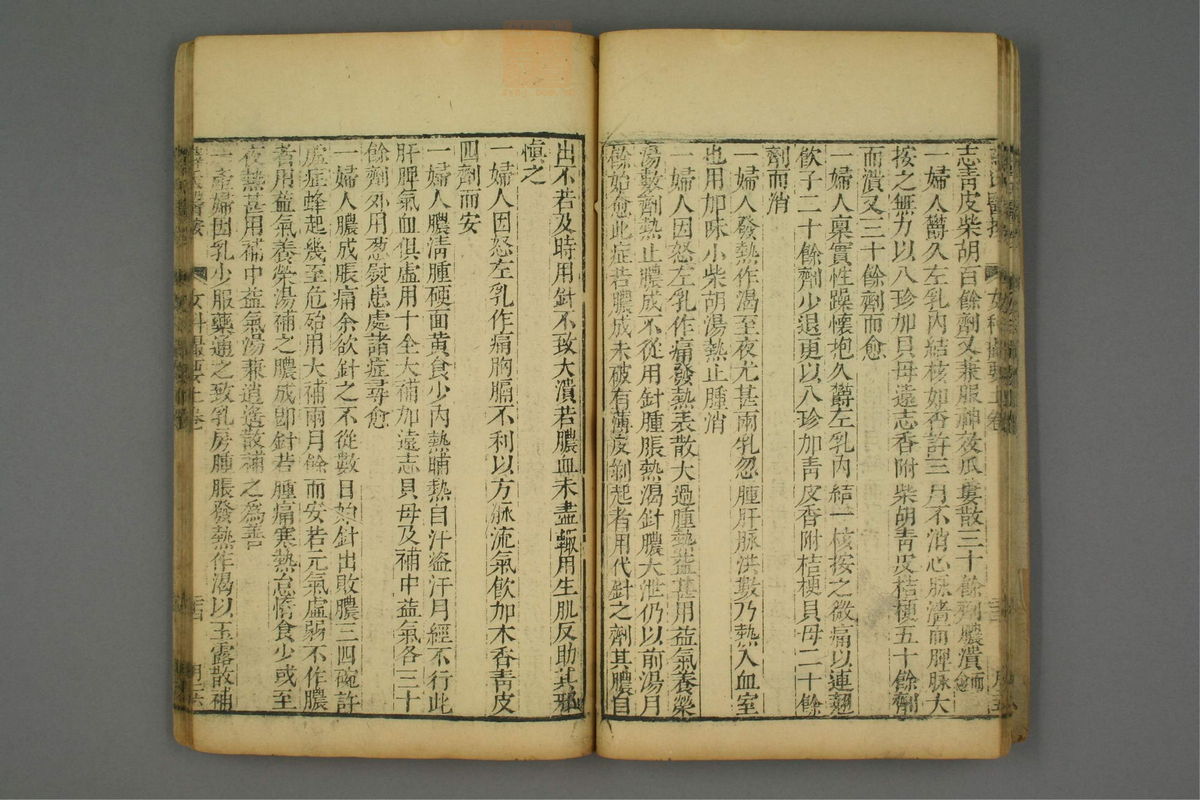 志青皮柴胡百餘劑又兼服神效瓜蔞散三十餘劑膿潰而愈
一婦人欝久左乳內結核如杏許三月不消心脉濇而脾脉大
按之無力以八珍加貝母遠志香附柴胡青皮桔梗五十餘劑
而潰又三十餘劑而愈
一婦人稟實性躁懷抱久欝左乳內結一核按之微痛以連翹
飲子二十餘劑少退更以八珍加青皮香附桔梗貝母二十餘
劑而消
一婦人發熱作渴至夜尤甚兩乳忽腫肝脉洪數乃熱入血室
也用加味小柴胡湯熱止腫消
一婦人因怒左乳作痛發熱表散大過腫熱益甚用益氣養榮
湯數劑熱止膿成不從用針腫脹熱渴針膿大泄仍以前湯月
餘始愈此症若膿成未破有薄皮剝起者用代針之劑其膿自
出不若及時用針不致大潰若膿血未盡輙用生肌反助其邪
慎之
一婦人因怒左乳作痛胸膈不利以方脉流氣飲加木香青皮
四劑而安
一婦人膿清腫硬面黃食少內熱晡熱自汗盜汗月經不行此
肝脾氣血俱虛用十全大補加遠志貝母及補中益氣各三十
餘劑外用葱熨患處諸症尋愈
一婦人膿成脹痛余欲針之不從數日始針出敗膿三四碗許
虛症蜂起幾至危殆用大補兩月餘而安若元氣虛弱不作膿
者用益氣養榮湯補之膿成卽針若腫痛寒熱怠惰食少或至
夜熱甚用補中益氣湯兼逍遙散補之爲善
一產婦因乳少服藥通之致乳房腫脹發熱作渴以玉露散補
薛氏醫按
女科撮要上卷